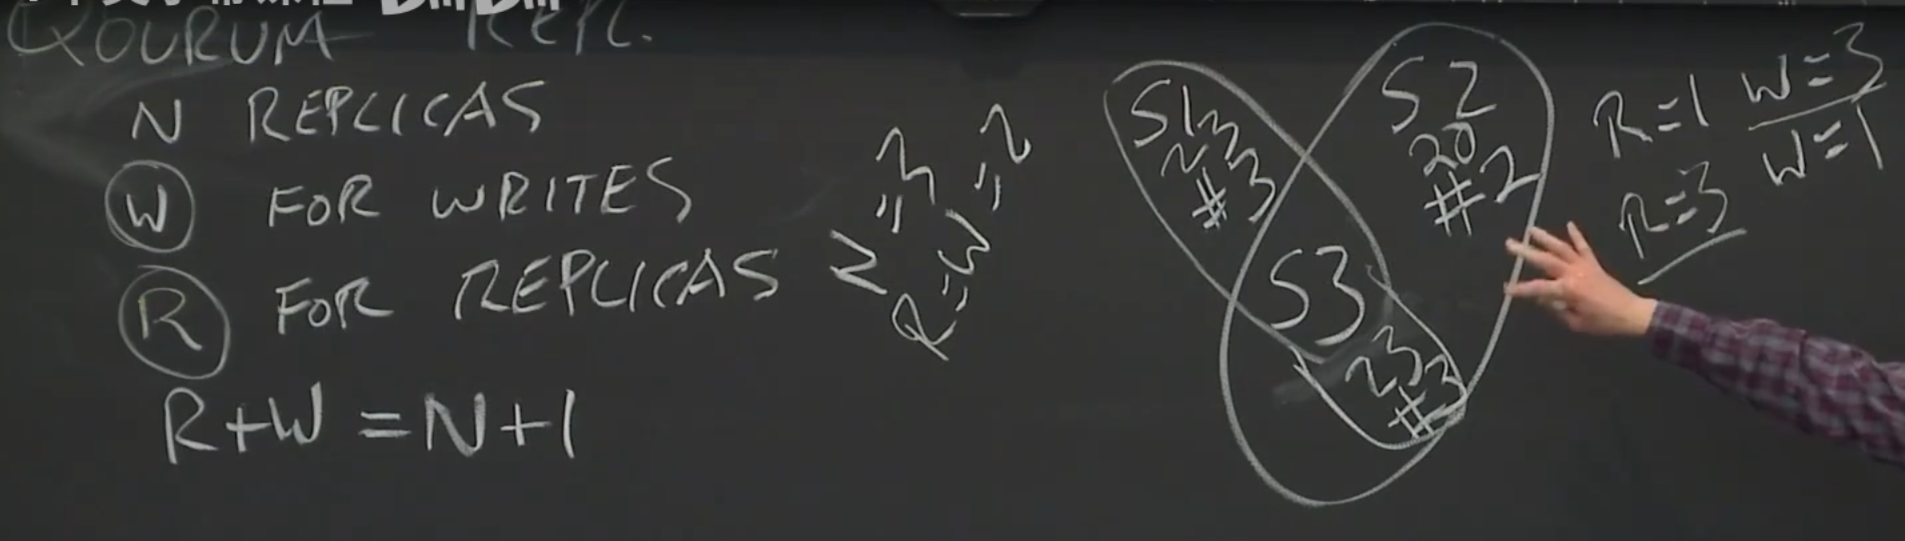 QOURUM REPL.
N REPLICAS
W FOR WRITES
R FOR REPLICAS
R+W=N+1
N=3
R=W=2
S1
23
#3
S2
20
#2
S3
23
#3
R=1 W=3
R=3 W=1